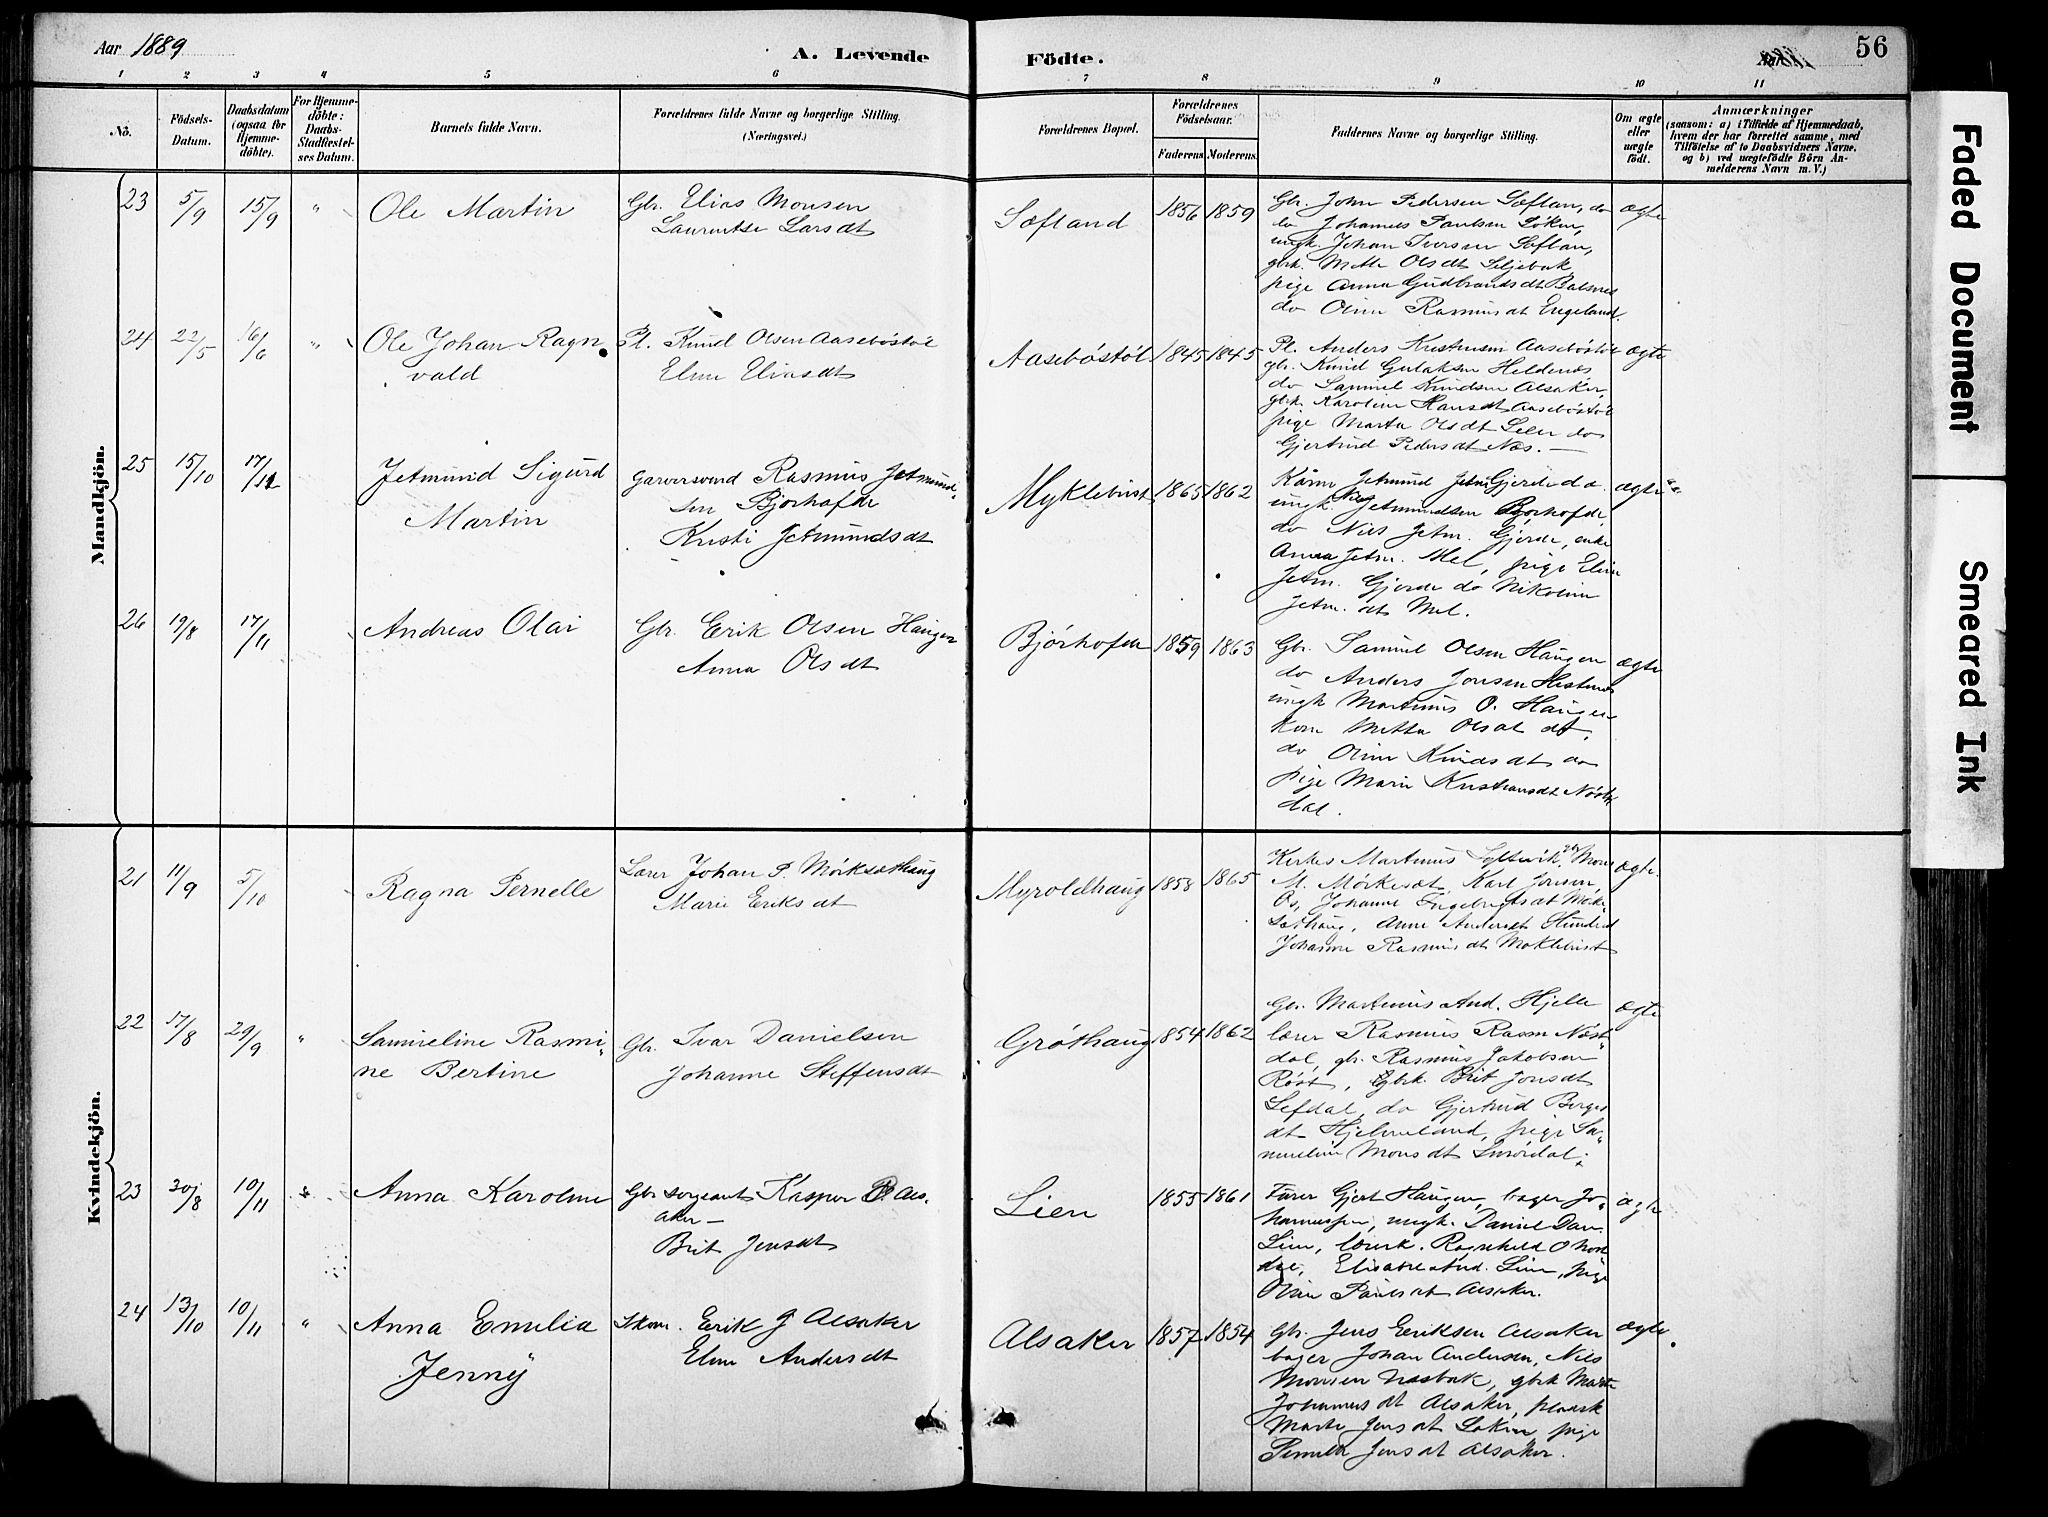 Aar 1889
A. Levende
Födte.
56
1 2 3 4 5 6 7 8 9 10 11
No.
Födsels-
Datum.
Daabsdatum
(ogsaa for
Hjemme-
döbte).
For Hjemme-
döbte:
Daabs-
Stadfæstel-
ses Datum.
Barnets fulde Navn.
Forældrenes fulde Navne og borgerlige Stilling.
(Næringsvei.)
Forældrenes Bopæl.
Forældrenes
Födselsaar.
Faderens Moderens
Faddernes Navne og borgerlige Stilling.
Om ægte
eller
uægte
födt.
Anmærkninger
(saasom: a) i Tilfælde af Hjemmedaab,
hvem der har forrettet samme, med
Tilföielse af to Daabsvidners Navne.
og b) ved uægtefödte Börn An-
melderens Navn m. V.)
Mandkjön.
23 5/9 15/9 " Ole Martin
Gbr. Elias Monsen
Laurentse Larsdt
Sæfland 1856 1859
Gbr. John Pedersen Sæflan, do
do Johannes Paulsen Løken,
ungk. Johan Iversen Sæflan,
gbrk. Mette Olsdt Seljebak
pige Anna Gudbrandsdt Balsnes
do Oline Rasmusdt Engeland.
ægte
24 22/5 16/6 " Ole Johan Ragn
vald
Pl. Knud Olsen Aasebøstøl
Eline Eliasdt
Aasebøstøl 1845 1845
Pl. Anders Kristensen Aasebøstøl
gbr. Knud Gulaksen Heldenes
do Samuel Knudsen Alsaker,
gbrk. Karoline Hansdt Aasebøstøl
pige Marta Olsdt Seler do
Gjertrud Pedersdt Næs. —
ægte
25 15/10 17/11 Jetmund Sigurd
Martin
Garversvend Rasmus Jetmund-
sen Bjørhofde
Kristi Jetmundsdt
Myklebust 1865 1862
Jetmund Jetm. Gjerde do.
ungk. Jetmundsen Bjørhofde,
do Nils Jetm. Gjerde, enke
Anna Jetm. Mel, pige Eline
Jetm. Gjerde do Nikoline
Jetm. dt Mel.
ægte
26 19/8 17/11 Andreas Olai
Gbr. Erik Olsen Haugen
Anna Olsdt
Bjørhofde 1859 1863
Gbr. Samuel Olsen Haugen
do Anders Jonsen Hestenes
ungk Martinus O. Haugen
Kone Mette Olsdt
do Oline Knudsdt do
pige Marie Kristiansdt Nøst-
dal.
ægte
Kvindekjön.
21 11/9 5/10 Ragna Pernelle
Lærer Johan P. Mørksethaug
Marie Eriksdt
Myroldhaug 1858 1865
Kirkes Martinus Solsvik, Mons
M. Mørkesdt, Karl Jonsen
Os, Johanne Ingebrigtsdt Mørk-
sethaug, Anne Andersdt Hundeid
Johanne Rasmusdt Moklebust
ægte.
22 17/8 29/9 " Samueline Rasmi-
ne Bertine
Gbr. Ivar Danielsen
Johanne Steffensdt
Grøthaug 1854 1862
Gbr. Martinus And. Hjelle
lærer Rasmus Rasm Nøst-
dal, gbr. Rasmus Jakobsen
Røst, Gbrk. Brit Jonsdt
Sefdal, do Gjertrud Børges
dt Hjelmeland, pige Sa-
mueline Monsdt Smørdal.
ægte
23 30/8 10/11 Anna Karoline
Gbr Sergeant Kasper P. Als-
aker —
Brit Jensdt
Lien 1855 1861
Fører Gjert Haugen, bager Jo-
hannessen, ungk. Daniel Dan.
Lien, lærerk. Ragnhild O Nord
dal, Elisabet And. Lien, pige
Oline Paulsdt Alsaker.
ægte
24 13/10 10/11 " Anna Emilia
Jenny
Skom. Erik J Alsaker
Eline Andersdt
Alsaker 1857 1854
Gbr. Jens Eriksen Alsaker
bager Johan Andersen, Nils
Monsen Næsbak, gbrk Marte
Johannesdt Alsaker,
Marte Jensdt Løken pige
Pernille Jensdt Alsaker.
ægte
Faded Document
Smeared Ink